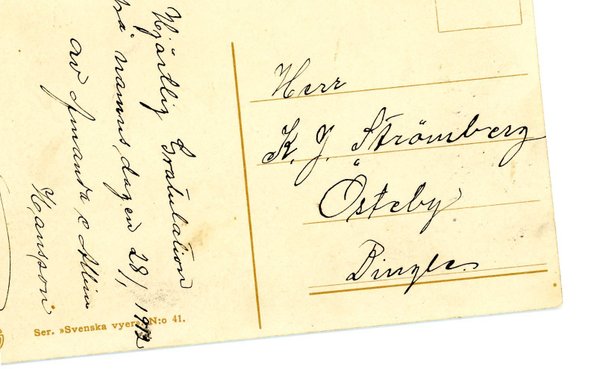 Hjärtlig Gratulation
på namnsdagen 28/1 1912
av Amanda & Albin
Hansson
Herr
K. J. Strömberg
Östeby
Dingle
Ser. »Svenska vyer» N:o 41.